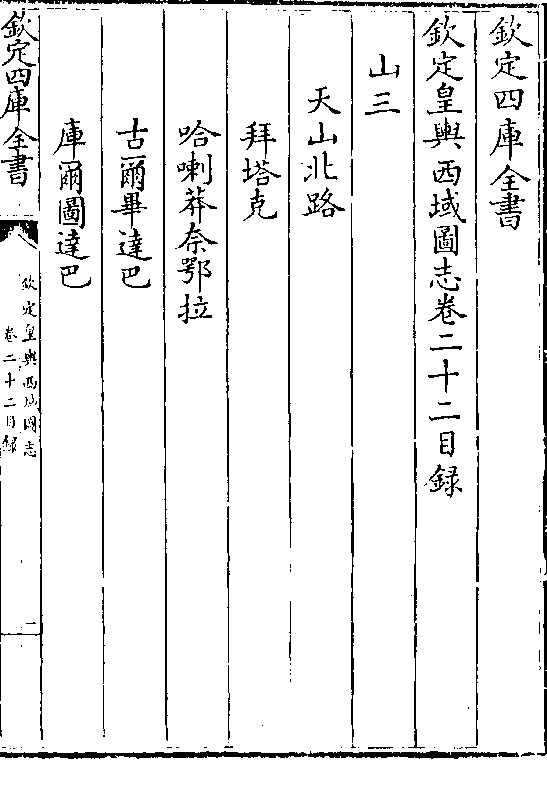 欽定四庫全書
欽定皇輿西域圖志卷二十二目録
山三
天山北路
拜塔克
哈喇莽奈鄂拉
古爾畢達巴
庫爾圖達巴
欽定四庫全書
欽定皇輿西域圖志
卷二十二目録
一